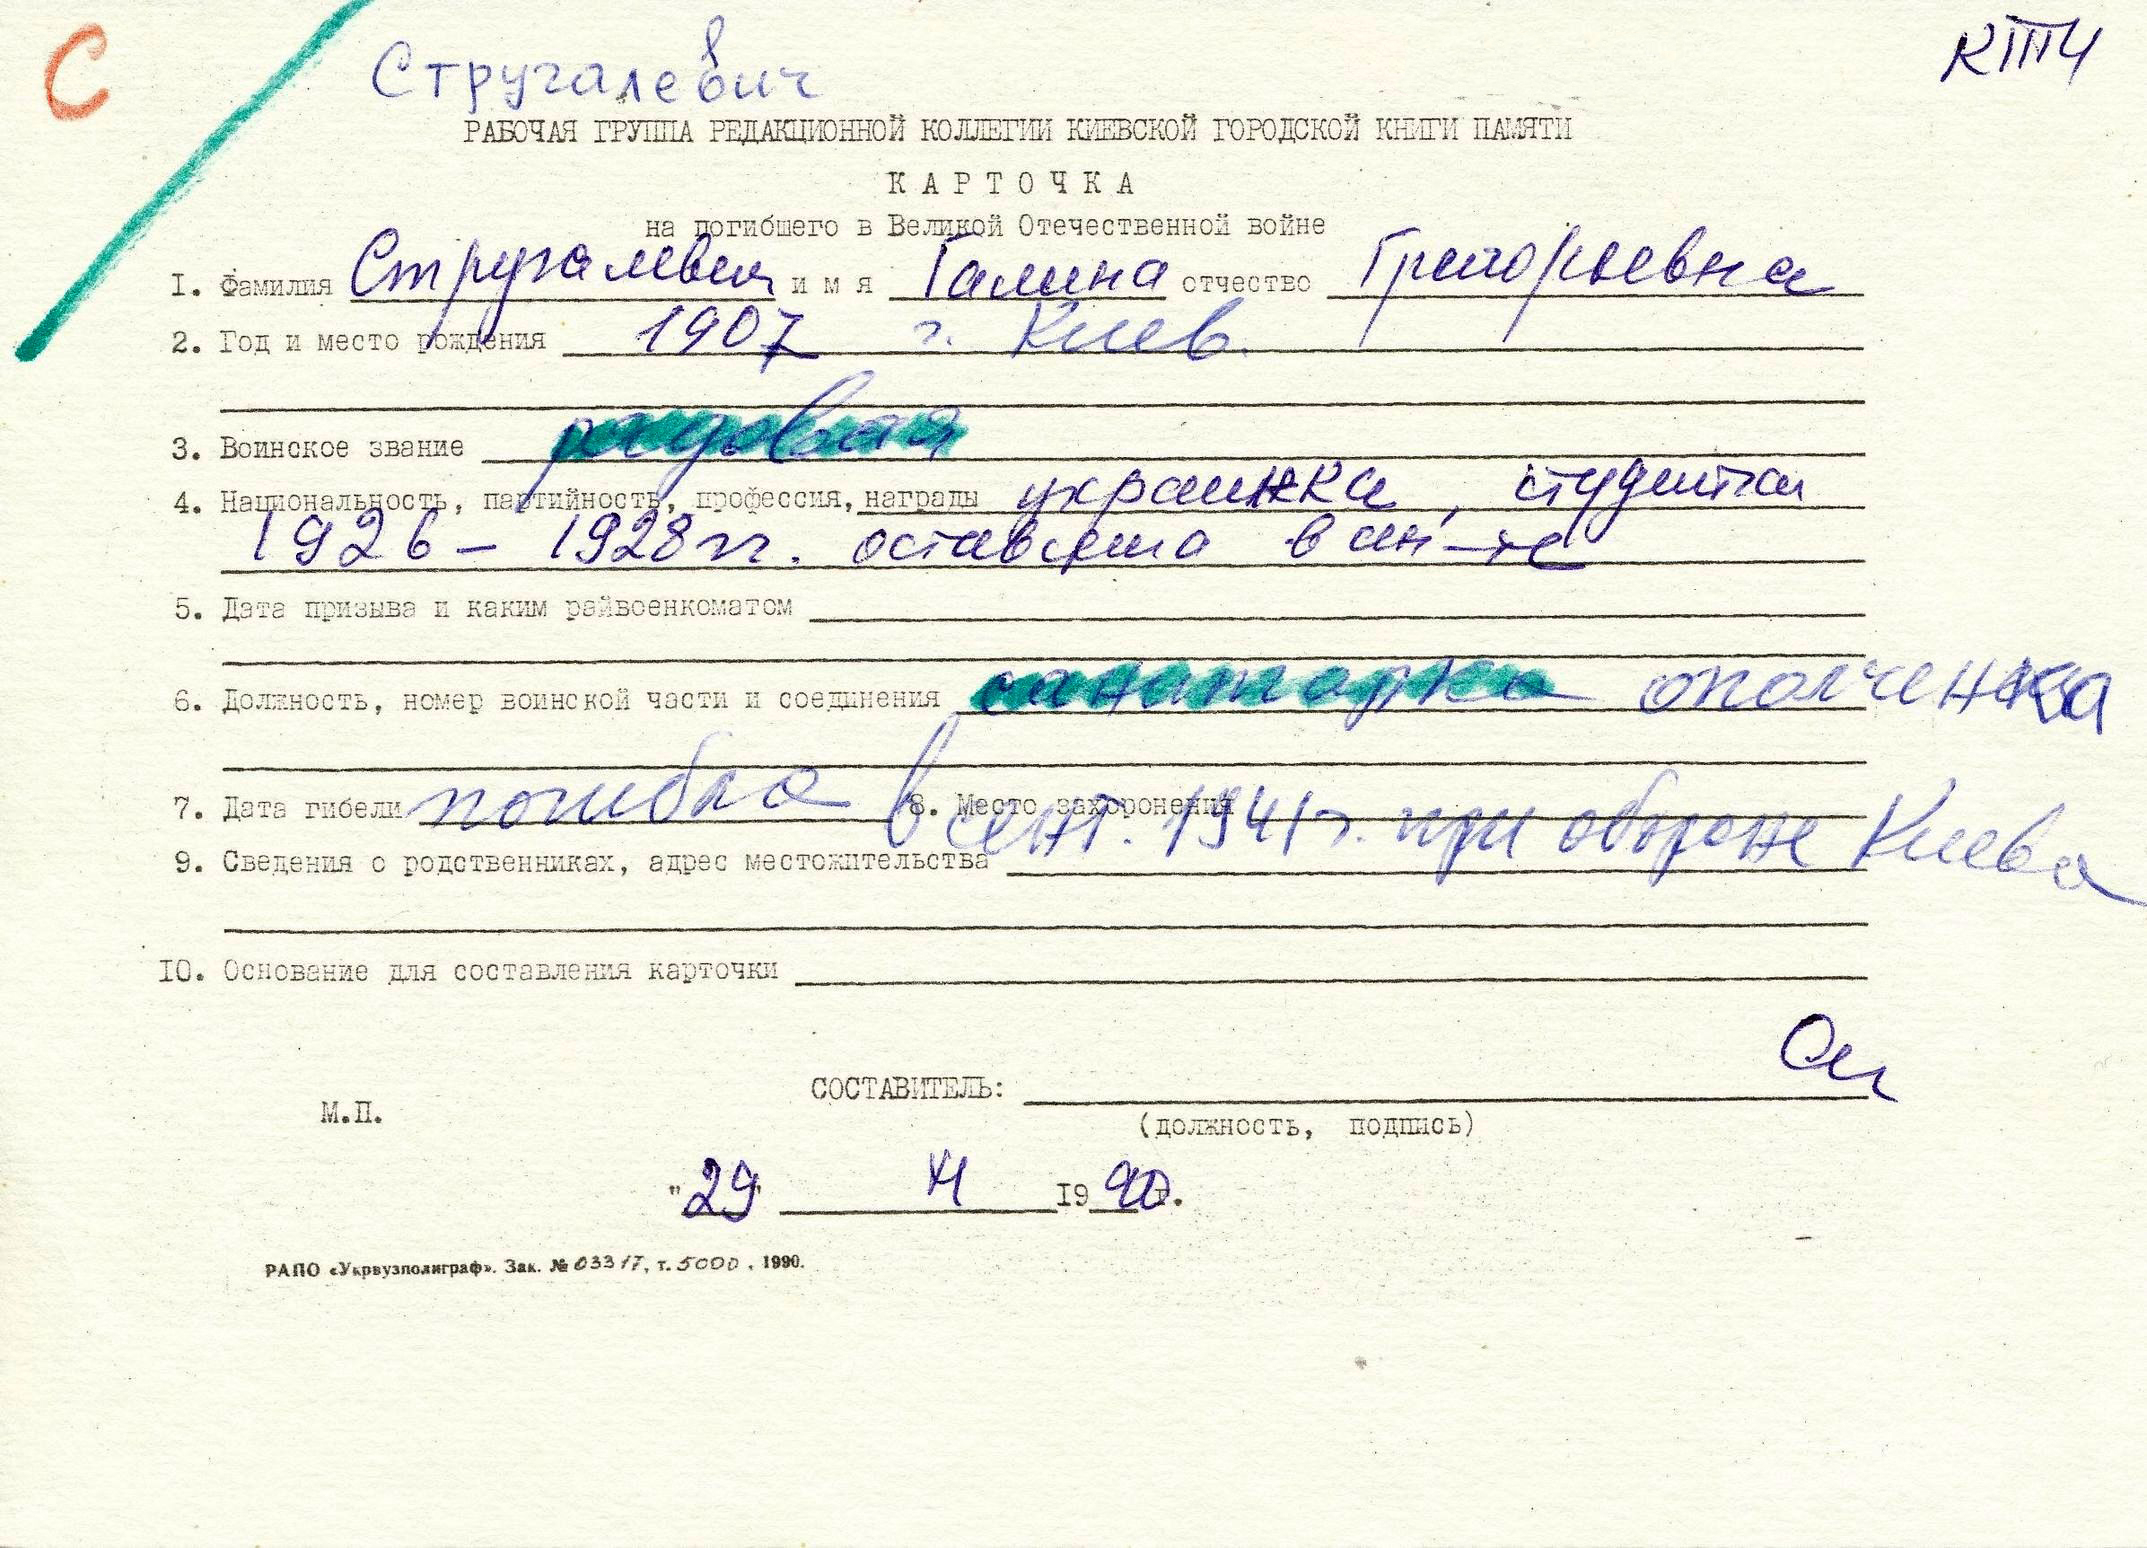 С
Стругалевич
КПЧ
РАБОЧАЯ ГРУППА РЕДАКЦИОННОЙ КОЛЛЕГИИ КИЕВСКОЙ ГОРОДСКОЙ КНИГИ ПАМЯТИ
КАРТОЧКА
на погибшего в Великой Отечественной войне
I. Фамилия Стругалевич имя Галина отчество Григорьевна
2. Год и место рождения 1907 г. Киев.
3. Воинское звание рядовая
4. Национальность, партийность, профессия, награды украинка, студентка
1926 – 1928 гг. оставлена в ин-те
5. Дата призыва и каким райвоенкоматом
6. Должность, номер воинской части и соединения санитарка ополченка
7. Дата гибели погибла в 8. Место захоронения сент. 1941 г. при обороне Киева
9. Сведения о родственниках, адрес местожительства
IO. Основание для составления карточки
СОСТАВИТЕЛЬ:
М.П.
(должность, подпись)
"29" 1990 г.
РАПО «Укрвузполиграф». Зак. № 03317, т. 5000, 1990.